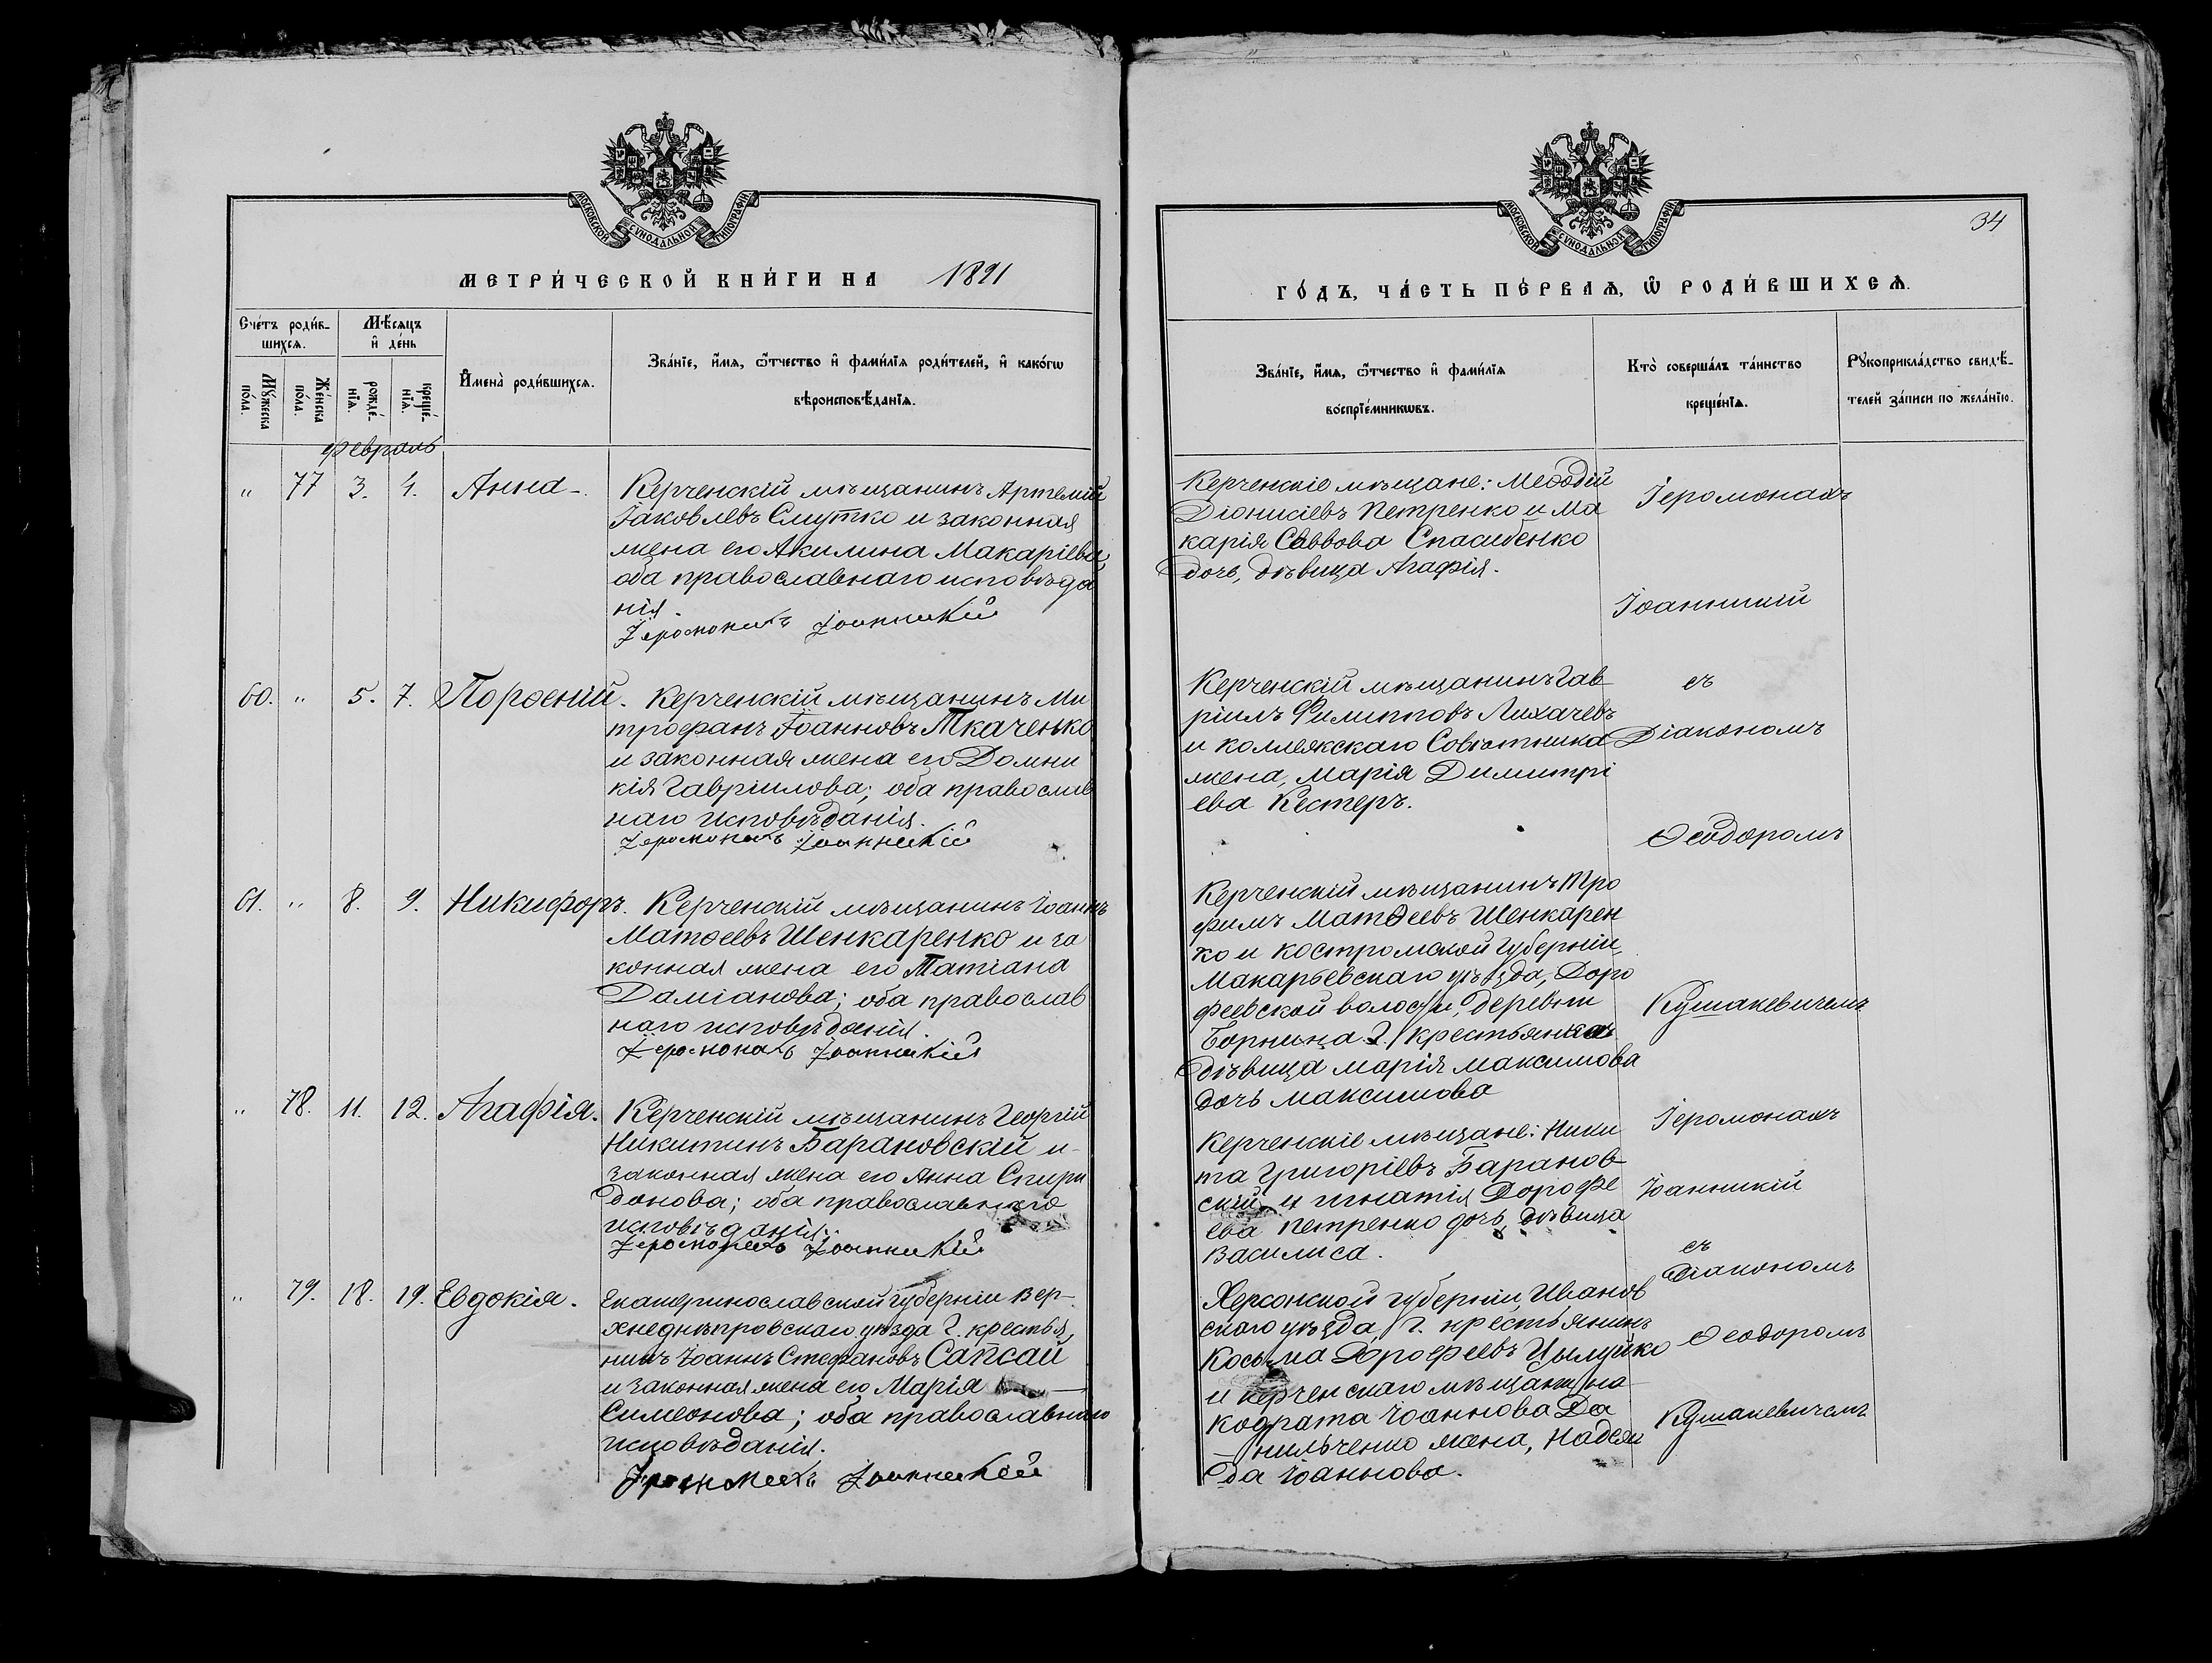 МОСКОВСКОЙ СѴНОДАЛЬНОЙ ТИПОГРАФІИ
МЕТРИ́ЧЕСКОЙ КНИ́ГИ НА 1891
Сче́тъ роди́в-
шихсѧ.
Мѣ́сѧцъ
и҆ де́нь
И҆мена̀ роди́вшихсѧ.
Зва́нїе, и҆́мѧ, ѻ҆́тчество и҆ фами́лїѧ роди́телей, и҆ како́гѡ
вѣроисповѣ́данїѧ.
Мꙋ́жеска
по́ла.
Же́нска
по́ла.
рожде́-
нїѧ.
креще́-
нїѧ.
Февраль
" 77 3. 4. Анна-.
Керченскій мѣщанинъ Артемій
Іаковлевъ Смутко и законная
жена его Акилина Макаріева,
оба православнаго исповѣда
нія.
Іеромонахъ Іоанникій
60. " 5. 7. Порѳеній.
Керченскій мѣщанинъ Ми
трофанъ Іоанновъ Ткаченко
и законная жена его Домни
кія Гавріилова; оба православ
наго исповѣданія.
Іеромонахъ Іоанникій
61. " 8. 9. Никифоръ.
Керченскій мѣщанинъ Іоаннъ
Матѳеевъ Шенкаренко и за
конная жена его Татіана
Даміанова; оба православ
наго исповѣданія.
Іеромонахъ Іоанникій
" 78. 11. 12. Агафія.
Керченскій мѣщанинъ Георгій
Никитинъ Барановскій и
законная жена его Анна Спири
донова; оба православнаго
исповѣданія.
Іеромонахъ Іоанникій
" 79. 18. 19. Евдокія.
Екатеринославской губерніи Вер-
хнеднѣпровскаго уѣзда г. крестья
нинъ Іоаннъ Стефановъ Сапсай
и законная жена его Марія
Симеонова; оба православнаго
исповѣданія.
Іеромонахъ Іоанникій
34
МОСКОВСКОЙ СѴНОДАЛЬНОЙ ТИПОГРАФІИ
ГО́ДЪ, ЧА́СТЬ ПЕ́РВАѦ, Ѡ҆ РОДИ́ВШИХСѦ.
Зва́нїе, и҆́мѧ, ѻ҆́тчество и҆ фами́лїѧ
воспрїе́мникѡвъ.
Кто̀ соверша́лъ та́инство
креще́нїѧ.
Рꙋкоприкла́дство свидѣ́-
телей за́писи по жела́нїю.
Керченскіе мѣщане: Меѳодій
Діонисіевъ Петренко и Ма
карія Саввова Спасибенко
дочь, дѣвица Агафія.
Іеромонахъ
Іоанникій
Керченскій мѣщанинъ Гав
ріилъ Филипповъ Лихачевъ
и коллежскаго Совѣтника
жена, Марія Димитрі
ева Кестеръ.
съ
Діакономъ
Ѳеодоромъ
Керченскій мѣщанинъ Тро
фимъ Матѳеевъ Шенкарен
ко и Костромской губерніи
Макарьевскаго уѣзда, Доро
феевской волости, деревни
крестьянка
дѣвица Марія Максимова
дочь Максимова
Кушакевичемъ
Керченскіе мѣщане: Ники
та Григоріевъ Баранов-
скій и Игнатія Дорофе
ева Петренко дочь, дѣвица
Василиса.
Іеромонахъ
Іоанникій
съ
Діакономъ
Херсонской губерніи, Иванов
скаго уѣзда, г. крестьянинъ
Косьма Дорофеевъ
и керченскаго мѣщанина
Кодрата Іоаннова Да
нильченко жена, Надеж
да Іоаннова.
Ѳеодоромъ
Кушакевичемъ